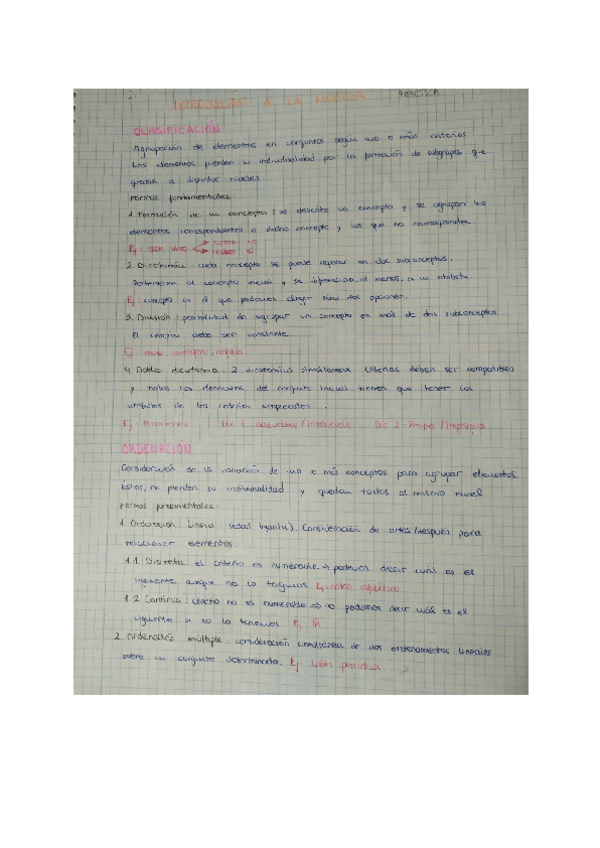 INTRODUCCIÓN A LA
CLASIFICACIÓN
Agrupación de elementos en conjuntos según uno o más criterios
Los elementos pierden su individualidad por la formación de subgrupos que
quedan a distintos niveles.
Formas fundamentales
1. Formación de un concepto: se describe un concepto y se agrupan los
elementos correspondientes a dicho concepto y los que no corresponden.
Ej: ser vivo
2. Dicotomía: cada concepto se puede separar en dos subconceptos.
al concepto inicial y se al menos, a un
Ej: concepto en el que podamos elegir dos opciones.
3. División: posibilidad de agrupar un concepto en más de dos subconceptos
El criterio debe ser constante.
Ej:
4. Doble dicotomía: 2 dicotomías simultáneas. Criterios deben ser compatibles
y todos los elementos del conjunto inicial tienen que tener los
de los criterios empleados.
Ej: Fracciones Dic 1: / Irreducible Dic 2: Propia / Impropia
ORDENACIÓN
Consideración de la variación de uno o más conceptos para agrupar elementos.
Éstos, no pierden su individualidad y quedan todos al mismo nivel
Formas fundamentales
1. Ordenación lineal (edad infantil). Consideración de antes/después para
relacionar elementos.
1.1. Discreta: el criterio es numerable → podemos decir cuál es el
siguiente aunque no lo tengamos. Ej: orden alfabético
1.2. Continua: criterio no es numerable => no podemos decir cuál es el
siguiente si no lo tenemos. Ej:
2. Ordenación múltiple: consideración simultánea de dos ordenamientos lineales
sobre un conjunto determinado. Ej: tabla periódica